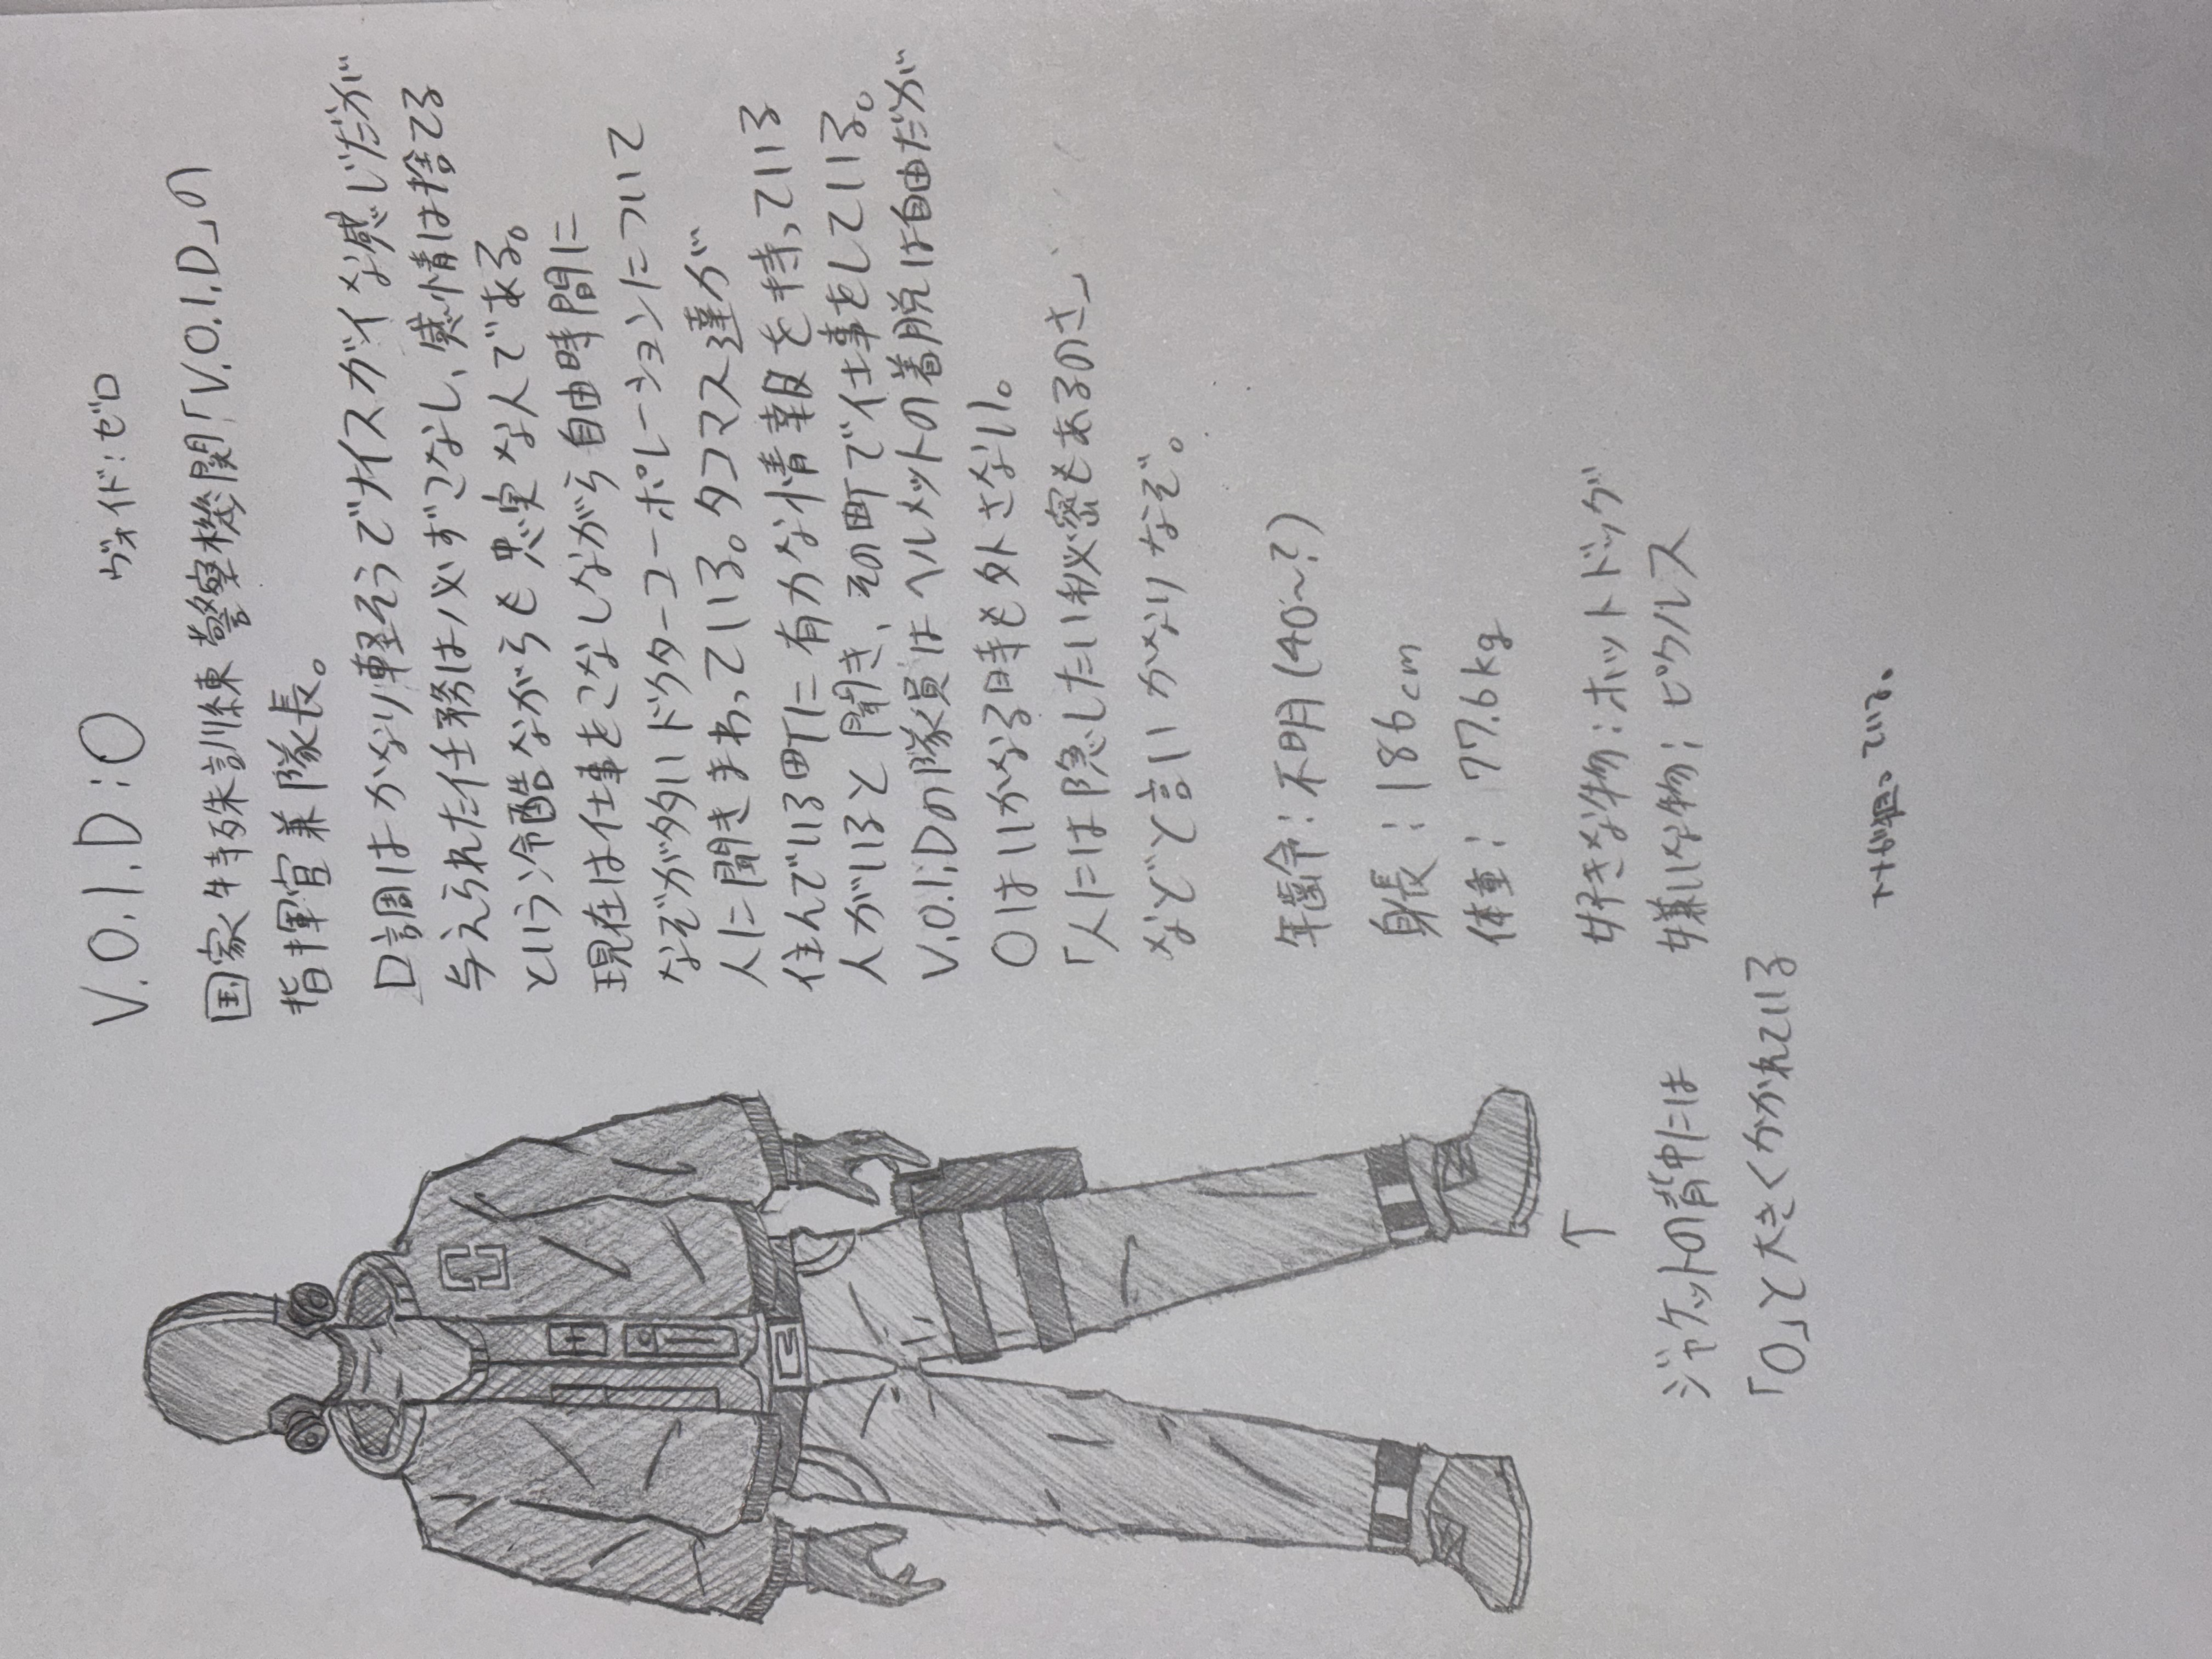 V.O.I.D:O ヴォイド:ゼロ
国家特殊訓練警察機関「V.O.I.D」の
指揮官兼隊長。
口調はかなり軽そうでナイスガイな感じだが
与えられた任務は必ずこなし、感情は捨てる
という冷酷ながらも忠実な人である。
現在は仕事をこなしながら自由時間に
なぞが多いドクターコーポレーションについて
人に聞きまわっている。タコマス達が
住んでいる町に有力な情報を持っている
人がいると聞き、その町で仕事をしている。
V.O.I.Dの隊員はヘルメットの着脱は自由だが
Oはいかなる時も外さない。
「人には隠したい秘密もあるのさ」
などと言いかなりなぞ。
年齢:不明(40〜?)
身長:186cm
体重:77.6kg
好きな物:ホットドッグ
嫌いな物:ピクルス
↑
ジャケットの背中には
「O」と大きくかかれている